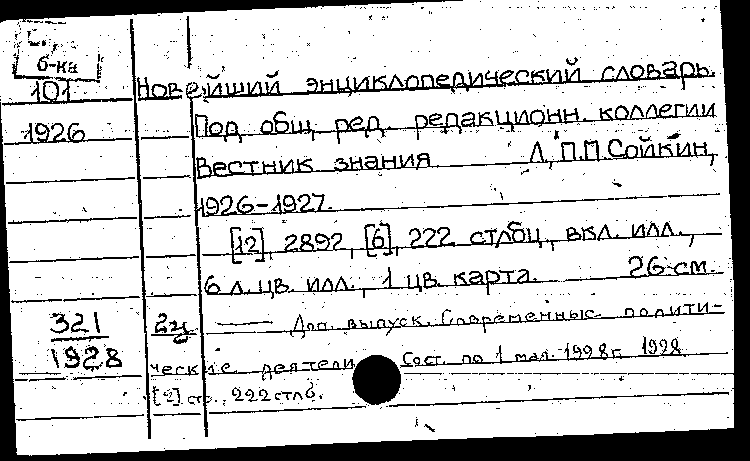 б-ка
101 Новейший энциклопедический словарь.
1926 Под общ. ред. редакционн. коллегии
Вестник знания Л, П.П.Сойкин,
1926-1927.
[12], 2892, [6], 222 стлбц., вкл. илл.,
6 л. цв. илл., 1 цв. карта. 26 см.
321 —— Доп. выпуск. Современные полити-
1928 ческие деятели Сост. по 1 мая 1928 г. 1928
[2] стр., 222 стлб.